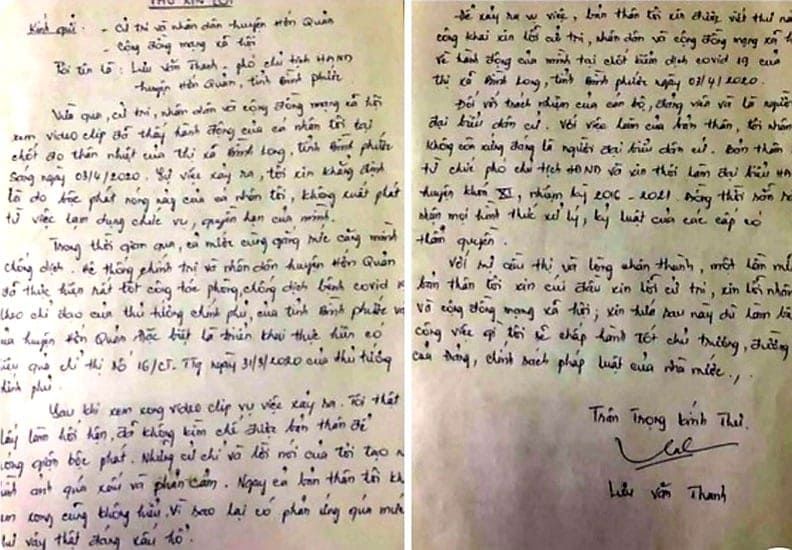 THƯ XIN LỖI
Kính gửi: - Cử tri và nhân dân huyện Hớn Quản
- Cộng đồng mạng xã hội
Tôi tên là: Lưu Văn Thanh - phó chủ tịch HĐND
huyện Hớn Quản, tỉnh Bình Phước.
Vừa qua, cử tri, nhân dân và cộng đồng mạng xã hội
xem video clip đã thấy hành động của cá nhân tôi tại
chốt đo thân nhiệt của thị xã Bình Long, tỉnh Bình Phước
sáng ngày 03/4/2020. Sự việc xảy ra, tôi xin khẳng định
là do bộc phát nóng nảy của cá nhân tôi, không xuất phát
từ việc lạm dụng chức vụ, quyền hạn của mình.
Trong thời gian qua, cả nước cùng gắng sức căng mình
chống dịch. Hệ thống chính trị và nhân dân huyện Hớn Quản
đã thực hiện rất tốt công tác phòng, chống dịch bệnh covid
theo chỉ đạo của thủ tướng chính phủ, của tỉnh Bình Phước và
của huyện Hớn Quản đặc biệt là triển khai thực hiện có
quả chỉ thị số 16/CT. TTg ngày 31/3/2020 của thủ tướng
phủ.
Sau khi xem xong video clip vụ việc xảy ra. Tôi thật
lấy làm hối hận, đã không kìm chế được bản thân để
nóng giận bộc phát. Những cử chỉ và lời nói của tôi tạo
ảnh quá xấu và phản cảm. Ngay cả bản thân tôi
xem xong cũng không hiểu. Vì sao lại có phản ứng quá
như vậy thật đáng xấu hổ.
Để xảy ra vụ việc, bản thân tôi xin được viết thư này
công khai xin lỗi cử tri, nhân dân và cộng đồng mạng xã
về hành động của mình tại chốt kiểm dịch covid 19 của
thị xã Bình Long, tỉnh Bình Phước ngày 03/4/2020.
Đối với trách nhiệm của cán bộ, đảng viên và là người
đại biểu dân cử. Với việc làm của bản thân, tôi nhận
không còn xứng đáng là người đại biểu dân cử. Bản thân
từ chức phó chủ tịch HĐND và xin thôi làm đại biểu
huyện khóa XI, nhiệm kỳ 2016 - 2021. Đồng thời sẵn
nhận mọi hình thức xử lý, kỷ luật của các cấp có
thẩm quyền.
Với sự cầu thị và lòng chân thành, một lần nữa
bản thân tôi xin cúi đầu xin lỗi cử tri, xin lỗi nhân
và cộng đồng mạng xã hội; xin hứa sau này dù làm
công việc gì tôi sẽ chấp hành tốt chủ trương, đường
của Đảng, chính sách pháp luật của nhà nước./.
Trân Trọng kính Thư.
Lưu Văn Thanh